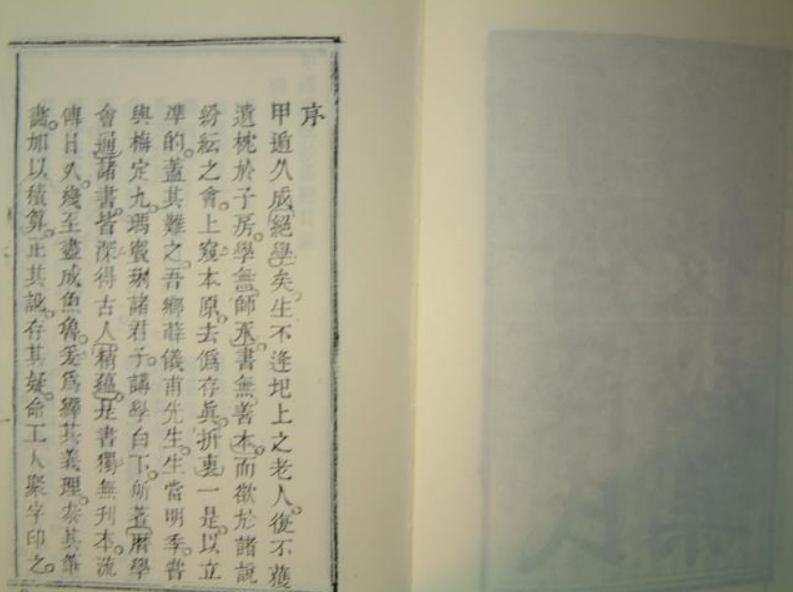 序
甲遁久成絕學矣。生不逢圯上之老人。復不獲
遺枕於子房。學無師承。書無善本。而欲於諸說
紛紜之會。上窺本原。去僞存眞。折衷一是。以立
準的。蓋其難之。吾鄉薛儀甫先生。生當明季。嘗
與梅定九。瑪蜜琍諸君子。講學白下。所著曆學
會通諸書。皆深得古人精蘊。是書獨無刊本。流
傳日久。幾至盡成魚魯。爰爲繹其義理。泰其
書。加以積算。正其訛。存其疑。命工人聚字印之。